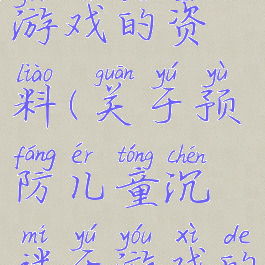 游戏的资
liào guān yú yù
料(关于预
fáng ér tóng chén
防儿童沉
mí yú yóu xì de
迷于游戏的